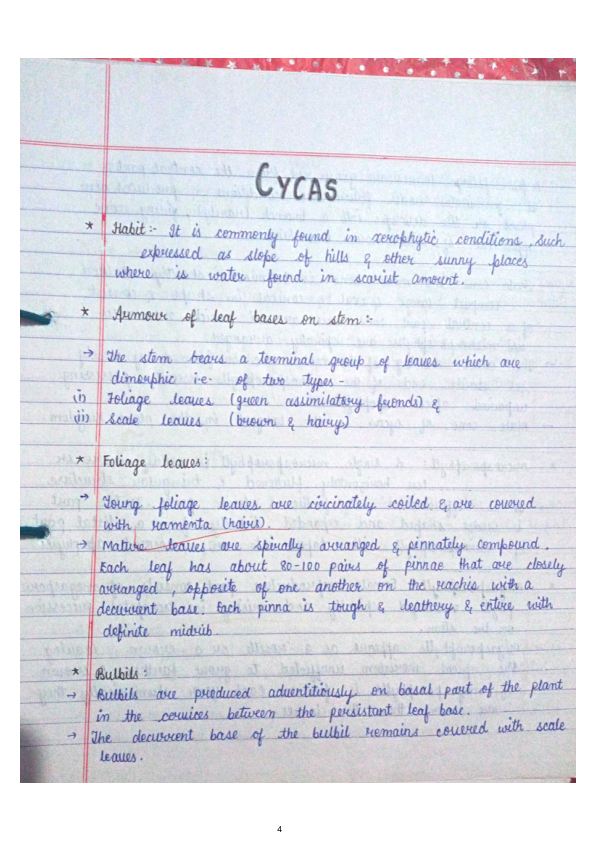 CYCAS
* Habit :- It is commonly found in xerophytic conditions. Such
expressed as slope of hills & other sunny places
where is water found in scarist amount.
* Armour of leaf bases on stem :-
→ The stem bears a terminal group of leaves which are
dimorphic i.e. of two types -
(i) Foliage leaves (green assimilatory fronds) &
(ii) Scale leaves (brown & hairy)
* Foliage leaves :
→ Young foliage leaves are circinately coiled & are covered
with ramenta (hairs).
→ Mature leaves are spirally arranged & pinnately compound.
Each leaf has about 80-100 pairs of pinnae that are closely
arranged, opposite of one another on the rachis with a
decurrent base. Each pinna is tough & leathery & entire with
definite midrib.
* Bulbils :
→ Bulbils are produced adventitiously on basal part of the plant
in the cervices between the persistant leaf base.
→ The decurrent base of the bulbil remains covered with scale
leaves.
4